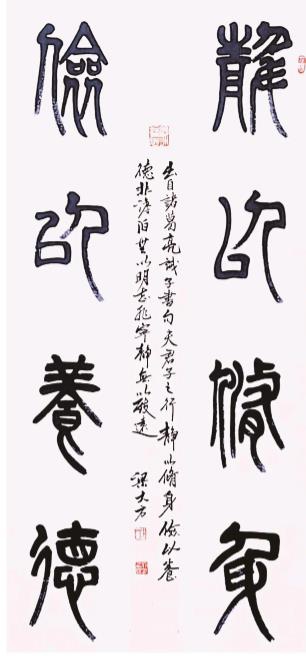 靜以脩身
出自諸葛亮誡子書句夫君子之行靜以脩身儉以養
德非澹泊無以明志非寧靜無以致遠 梁大方
儉以養德